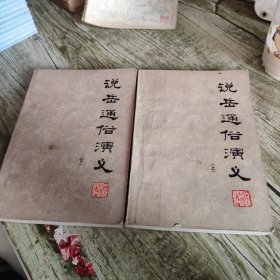 说岳通俗演义
说岳通俗演义
(上)